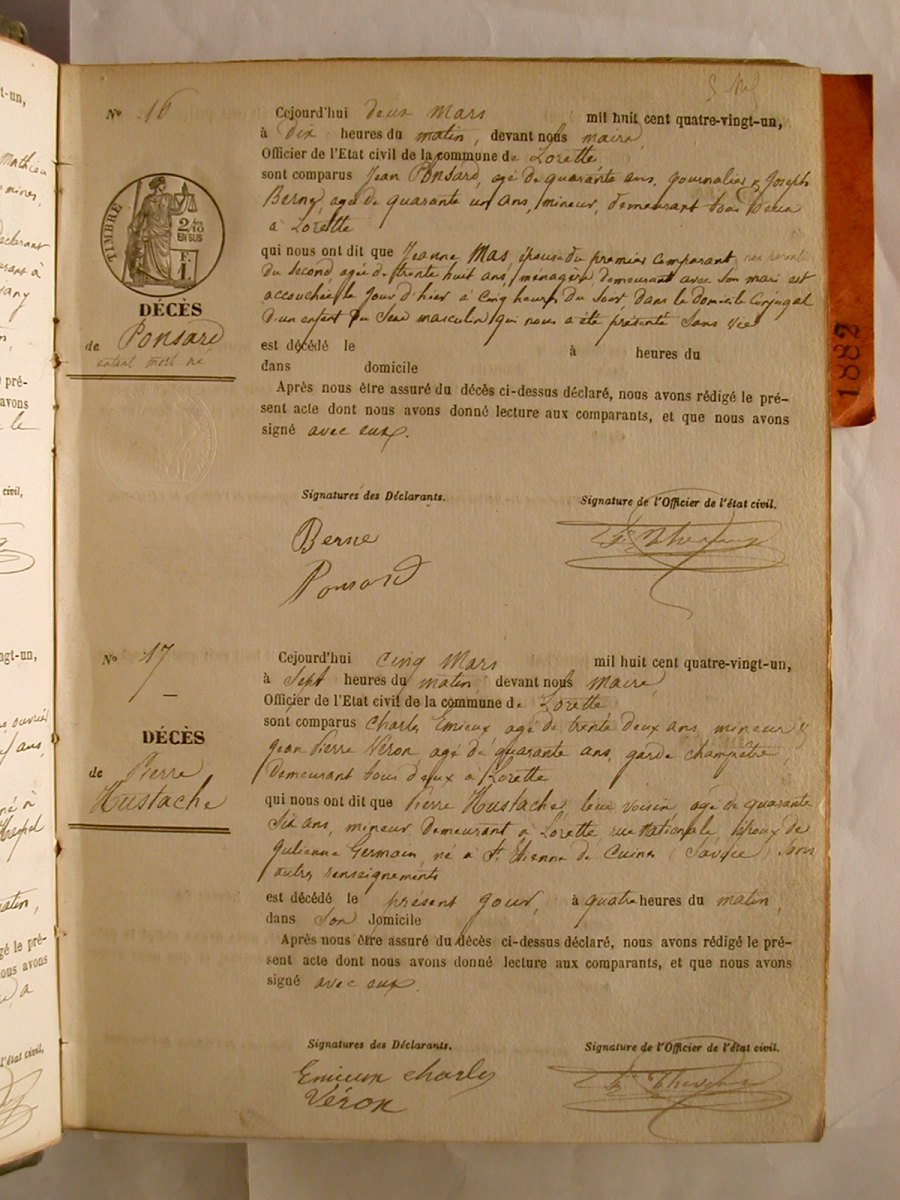 t-un,
Mathieu
mines,
déclarant
urant à
pré-
avons
le
civil,
ngt-un,
ouvrier
ans,
né à
matin,
gé le pré-
ous avons
à
l'état civil,
1882
Nº 16
Cejourd'hui deux Mars mil huit cent quatre-vingt-un,
à Dix heures du matin, devant nous maire,
Officier de l'Etat civil de la commune de Lorette
sont comparus Jean Ponsard, agé de quarante ans, journalier & Joseph
Berne, agé de quarante un ans, mineur, demeurant tous deux
à Lorette
TIMBRE
2/10
EN SUS
1
DÉCÈS
de Ponsard
enfant mort né
qui nous ont dit que Jeanne Mas épouse du premier comparant, non parente
du second agée de trente huit ans, ménagère, demeurant avec son mari est
accouchée le jour d'hier à cinq heures du soir dans le domicile conjugal
d'un enfant du sexe masculin qui nous a été présenté sans vie
est décédé le à heures du
dans domicile
Après nous être assuré du décès ci-dessus déclaré, nous avons rédigé le pré-
sent acte dont nous avons donné lecture aux comparants, et que nous avons
signé avec eux.
Signatures des Déclarants. Signature de l'Officier de l'état civil.
Berne
Ponsard
Nº 17
Cejourd'hui cinq Mars mil huit cent quatre-vingt-un,
à Sept heures du matin, devant nous Maire,
Officier de l'Etat civil de la commune de Lorette
sont comparus Charles Emieux agé de trente deux ans, mineur &
Jean Pierre Véron agé de quarante ans, garde champêtre,
demeurant tous deux à Lorette
DÉCÈS
de Pierre
Hustache
qui nous ont dit que Pierre Hustache, leur voisin agé de quarante
six ans, mineur demeurant à Lorette rue Nationale, époux de
Julienne Germain, né à St. Etienne de Cuines (Savoie) sans
autres renseignements
est décédé le présent jour, à quatre heures du matin,
dans son domicile
Après nous être assuré du décès ci-dessus déclaré, nous avons rédigé le pré-
sent acte dont nous avons donné lecture aux comparants, et que nous avons
signé avec eux.
Signatures des Déclarants. Signature de l'Officier de l'état civil.
Emieux Charles
Véron